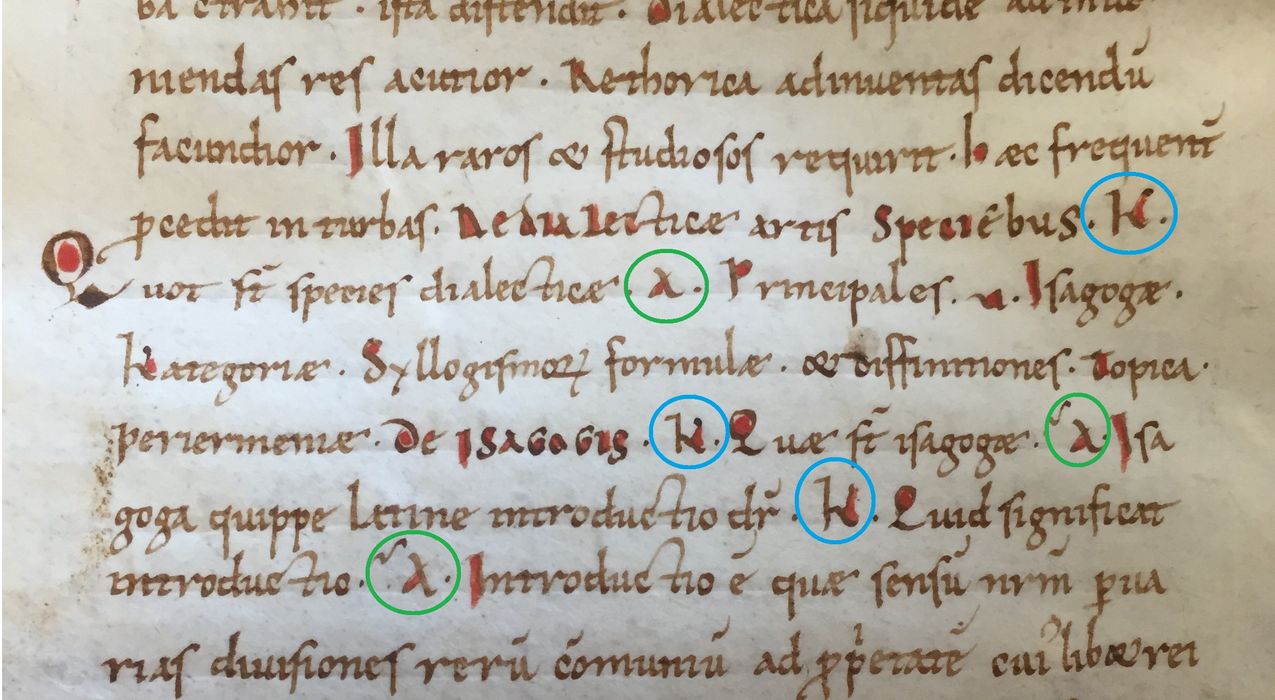 ba c̄trahit · ista distendit · Dialectica siquidē ad inue
niendas res acutior · Rethorica adinuentas dicendū
facundior · Illa raros & studiosos requirit · haec frequent̄
p̄cedit in turbas · De dialecticae artis speciēbus · K ·
Quot st̄ species dialecticae · A · Principales · v · Isagogae ·
Kategoriae · Syllogismoꝝ formulae · & diffinitiones · Topica ·
periermeniae · De isagogis · K · Quae st̄ isagogae · A · Isa
goga quippe latine introductio dr̄ · K · Quid significat
introductio · A · Introductio ē quae sensū nrm̄ p̄ ua
rias diuisiones rerū cōmuniū ad p̄p̄etatē cui libet rei